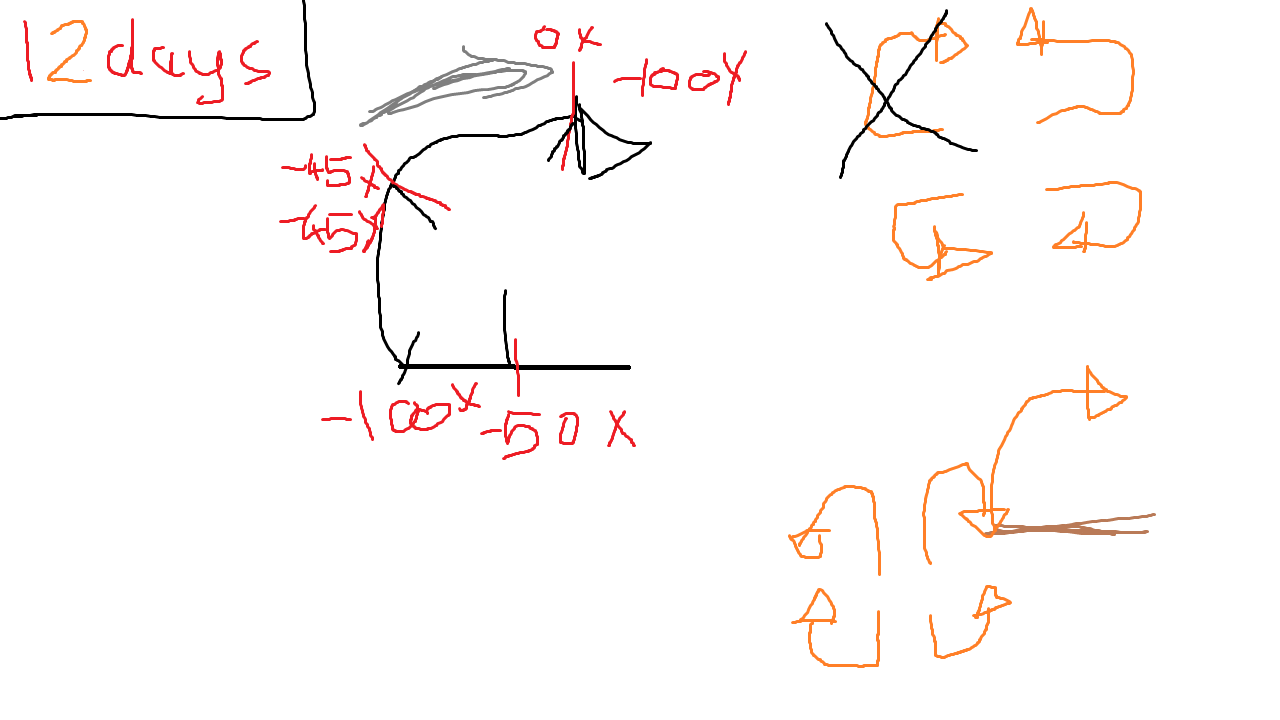 12 days
0 x
-100Y
-45 x
-45y
-100x
-50 x